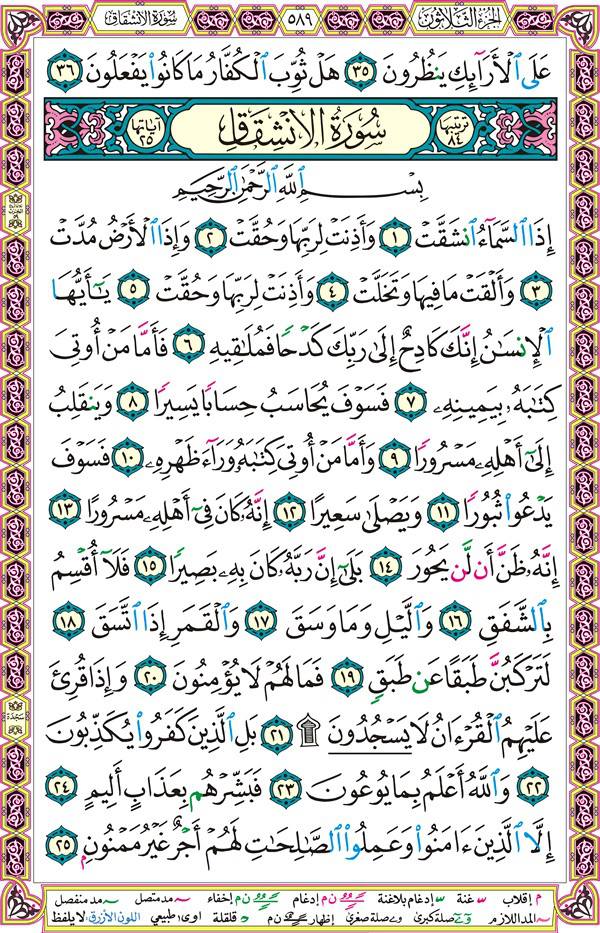 الجزء الثلاثون
٥٨٩
سورة الانشقاق
عَلَى ٱلْأَرَآئِكِ يَنظُرُونَ ٣٥ هَلْ ثُوِّبَ ٱلْكُفَّارُ مَا كَانُوا۟ يَفْعَلُونَ ٣٦
ترتيبها ٨٤
سُورَةُ الانْشِقَاقِ
آياتها ٢٥
بِسْمِ ٱللَّهِ ٱلرَّحْمَٰنِ ٱلرَّحِيمِ
إِذَا ٱلسَّمَآءُ ٱنشَقَّتْ ١ وَأَذِنَتْ لِرَبِّهَا وَحُقَّتْ ٢ وَإِذَا ٱلْأَرْضُ مُدَّتْ
٣ وَأَلْقَتْ مَا فِيهَا وَتَخَلَّتْ ٤ وَأَذِنَتْ لِرَبِّهَا وَحُقَّتْ ٥ يَٰٓأَيُّهَا
ٱلْإِنسَٰنُ إِنَّكَ كَادِحٌ إِلَىٰ رَبِّكَ كَدْحًا فَمُلَٰقِيهِ ٦ فَأَمَّا مَنْ أُوتِىَ
كِتَٰبَهُۥ بِيَمِينِهِۦ ٧ فَسَوْفَ يُحَاسَبُ حِسَابًا يَسِيرًا ٨ وَيَنقَلِبُ
إِلَىٰٓ أَهْلِهِۦ مَسْرُورًا ٩ وَأَمَّا مَنْ أُوتِىَ كِتَٰبَهُۥ وَرَآءَ ظَهْرِهِۦ ١٠ فَسَوْفَ
يَدْعُوا۟ ثُبُورًا ١١ وَيَصْلَىٰ سَعِيرًا ١٢ إِنَّهُۥ كَانَ فِىٓ أَهْلِهِۦ مَسْرُورًا ١٣
إِنَّهُۥ ظَنَّ أَن لَّن يَحُورَ ١٤ بَلَىٰٓ إِنَّ رَبَّهُۥ كَانَ بِهِۦ بَصِيرًا ١٥ فَلَآ أُقْسِمُ
بِٱلشَّفَقِ ١٦ وَٱلَّيْلِ وَمَا وَسَقَ ١٧ وَٱلْقَمَرِ إِذَا ٱتَّسَقَ ١٨
لَتَرْكَبُنَّ طَبَقًا عَن طَبَقٍ ١٩ فَمَا لَهُمْ لَا يُؤْمِنُونَ ٢٠ وَإِذَا قُرِئَ
عَلَيْهِمُ ٱلْقُرْءَانُ لَا يَسْجُدُونَ ۩ ٢١ بَلِ ٱلَّذِينَ كَفَرُوا۟ يُكَذِّبُونَ
٢٢ وَٱللَّهُ أَعْلَمُ بِمَا يُوعُونَ ٢٣ فَبَشِّرْهُم بِعَذَابٍ أَلِيمٍ ٢٤
إِلَّا ٱلَّذِينَ ءَامَنُوا۟ وَعَمِلُوا۟ ٱلصَّٰلِحَٰتِ لَهُمْ أَجْرٌ غَيْرُ مَمْنُونٍۭ ٢٥
سجدة
م إقلاب غنة إدغام بلاغنة ن م إدغام ن م إخفاء مد متصل مد منفصل
المد اللازم صلة كبرى صلة صغرى إظهار ن م قلقلة اوى؛ طبيعي اللون الأزرق: لا يلفظ